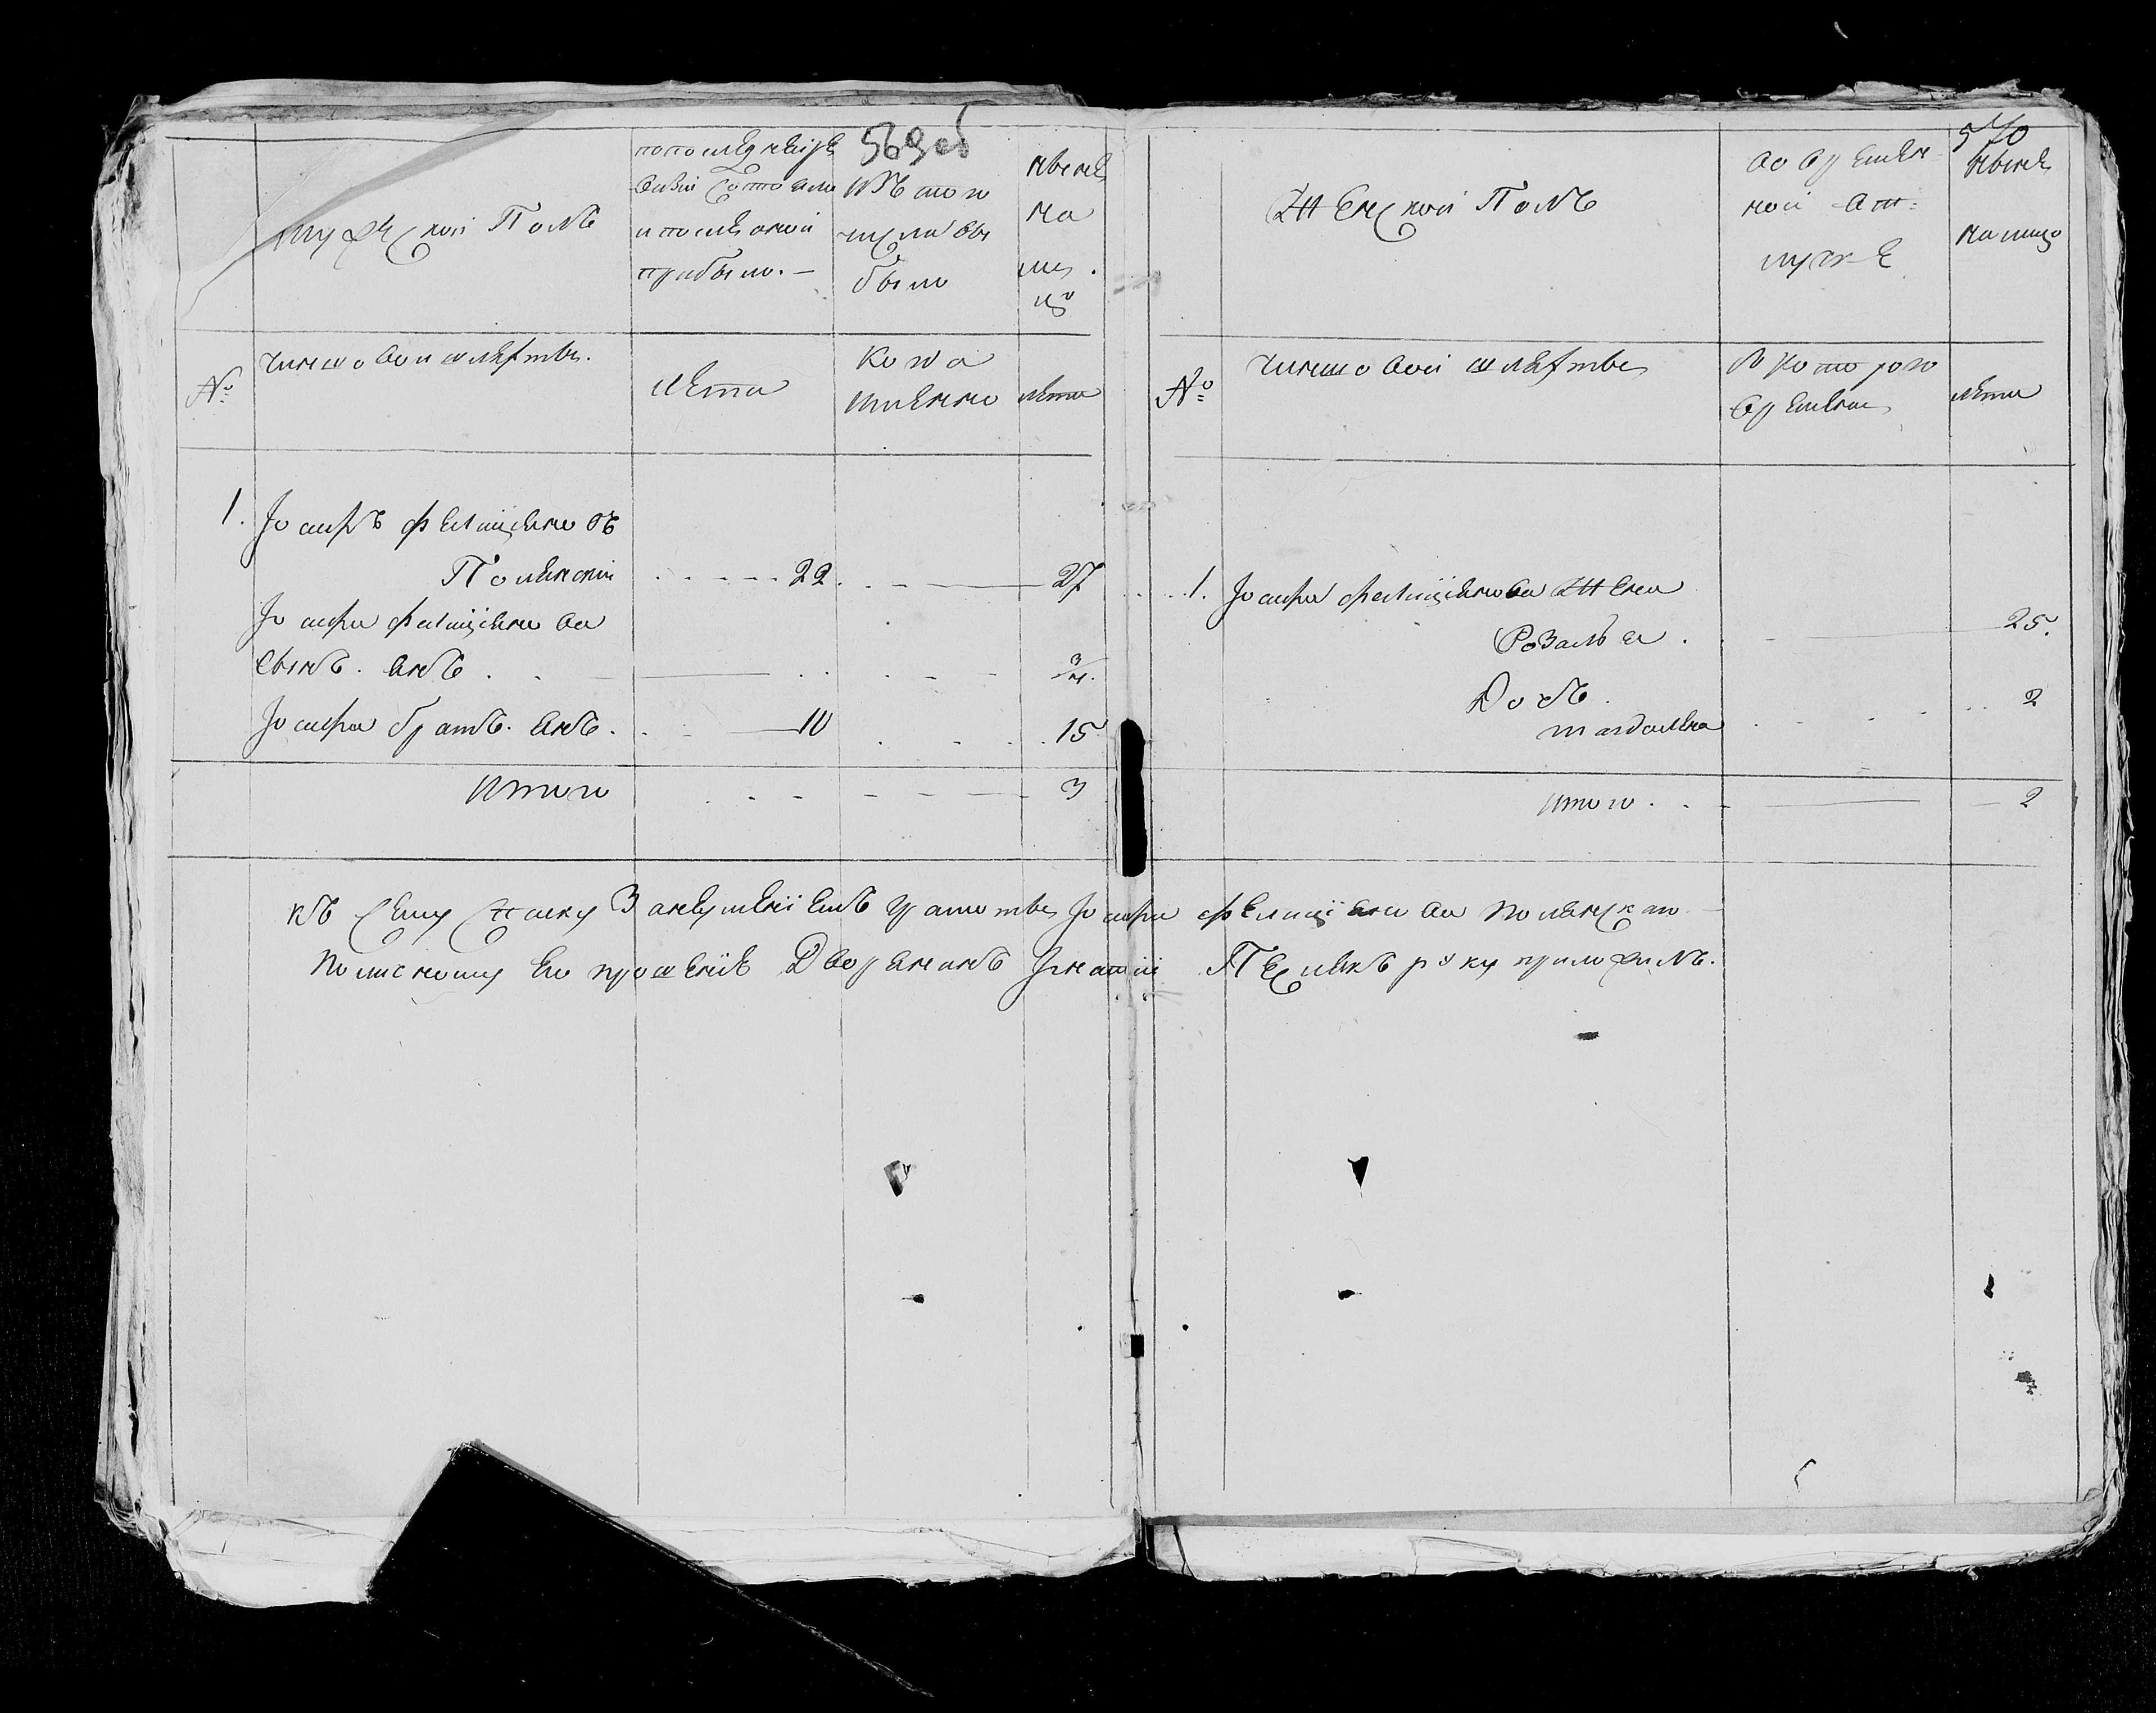 569 об
мужеской Полъ
попоследнейре
визiи состояло
и послѣ оной
прибыло. —
Изъ того
числа вы
было
нынѣ
на
ли
цо
№
чиншовои шляхты.
лета
Когда
именно
лета
1. Iосифъ Фелицiановъ
Поленскiй 22. 27
Iосифа Фелицiанова
сынъ. Янъ 3/м.
Iосифа братъ. Янъ. 10 15
Итого 3
570
Женской Полъ
во времен
ной отлучкѣ
нынѣ
налицо
№
чиншовой шляхты
С котораго
времени
лета
1. Iосифа Фелицiанова Жена
Розалья. 25.
Дочь.
Магдалена 2
Итого. 2
Къ сему списку За неуменiемъ грамоты Iосифа Фелицiанова Поленскаго
По личному Его прошенiю Дворянинъ Игнатiй руку приложилъ.